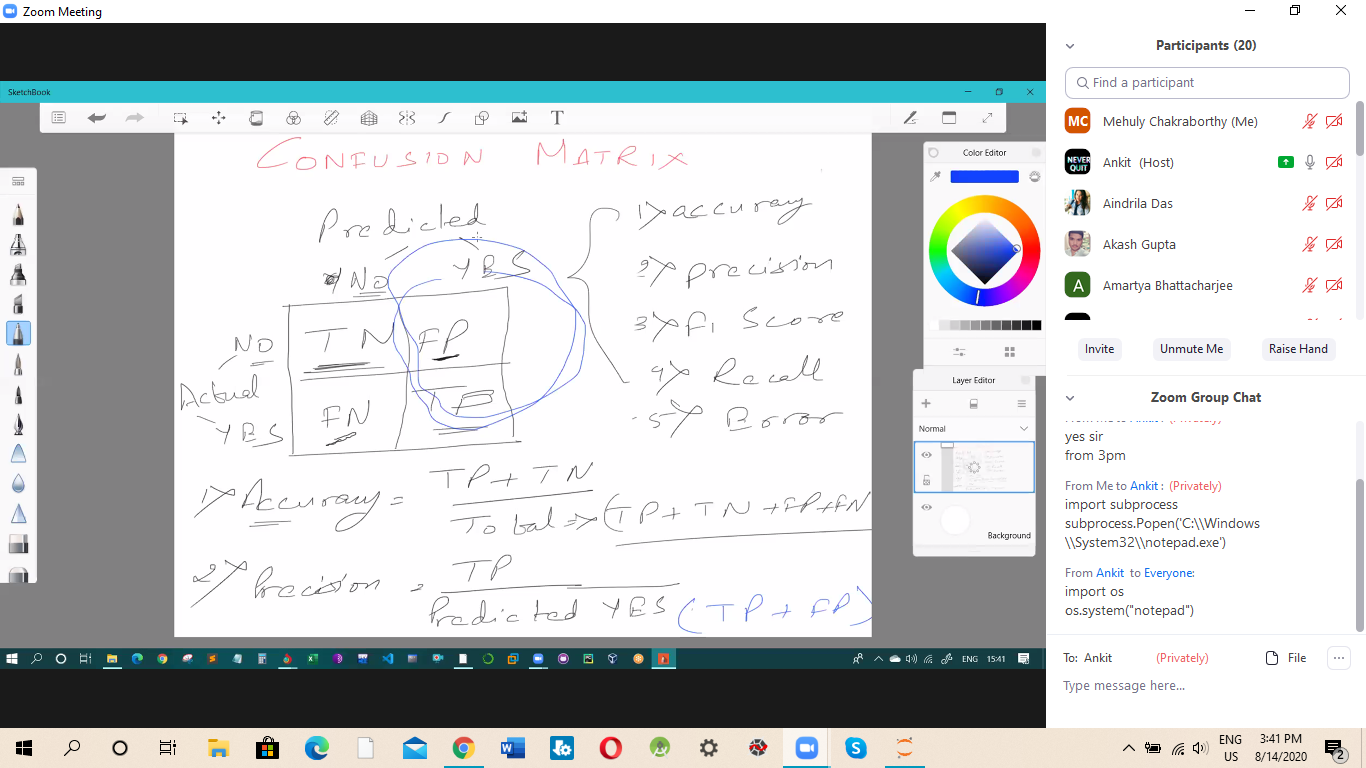 Zoom Meeting
SketchBook
CONFUSION MATRIX
Predicted
NO YES
NO TN FP
Actual
YES FN TP
1) accuracy
2) precision
3) F1 Score
4) Recall
5) Error
1) Accuracy = TP + TN
Total => (TP + TN + FP + FN
2) Precision = TP
Predicted YES (TP + FP)
Color Editor
Layer Editor
Normal
Background
ENG 15:41
Participants (20)
Find a participant
MC Mehuly Chakraborthy (Me)
NEVER QUIT Ankit (Host)
Aindrila Das
Akash Gupta
A Amartya Bhattacharjee
Invite Unmute Me Raise Hand
Zoom Group Chat
yes sir
from 3pm
From Me to Ankit : (Privately)
import subprocess
subprocess.Popen('C:\\Windows
\\System32\\notepad.exe')
From Ankit to Everyone:
import os
os.system("notepad")
To: Ankit (Privately) File
Type message here...
ENG
US
3:41 PM
8/14/2020
2